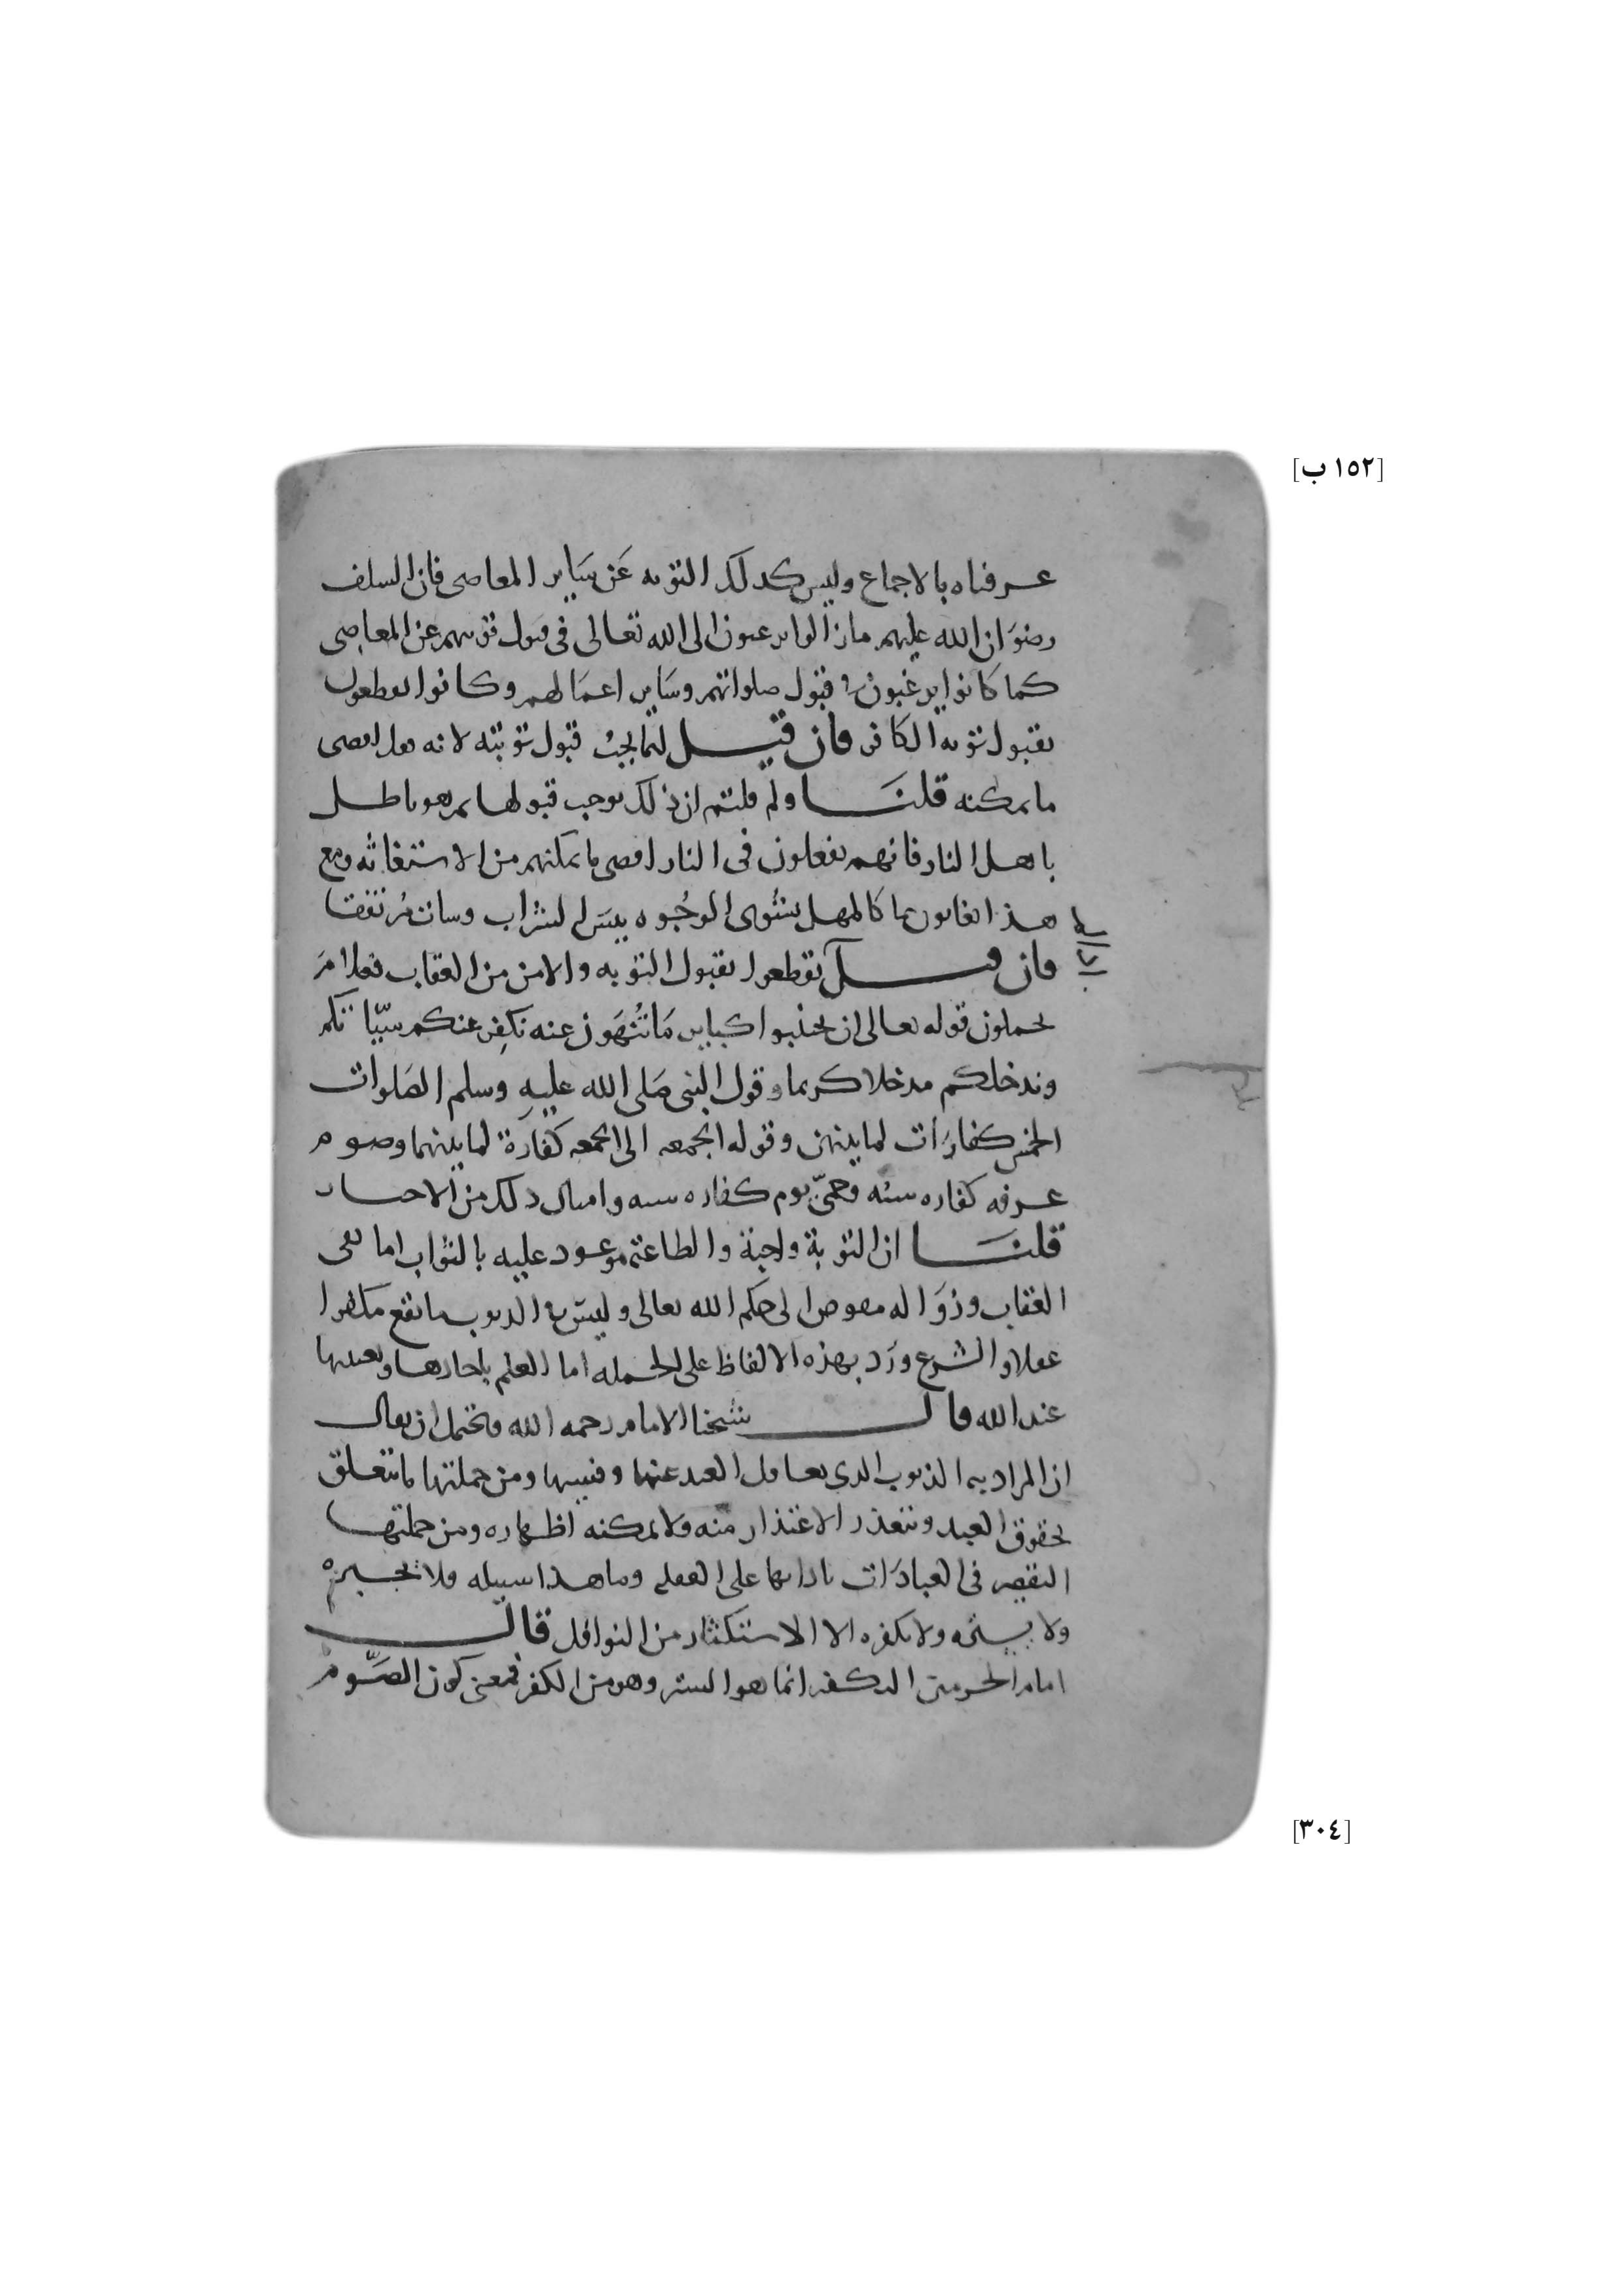 [١٥٢ ب]
عرفناه بالاجماع وليس كذلك التوبه عَن سَاير المعاصي فان السلف
رضوَان الله عليهم مازالوا يرغبون الى الله تعالى في قبول توبتهم عن المعاصي
كما كانوا يرغبون في قبول صلواتهم وسَاير اعمَالهم وكانوا يقطعون
بقبول توبه الكافر فان قيل انما يجبُ قبول توبته لانه فعل اقصى
ما يمكنه قلنَا ولم قلتم ان ذلك يوجب قبولها ثم هو باطل
باهل النار فانهم يفعلون في النار اقصى ما يمكنهم من الاستغاثه ومع
هذا يغاثون بما كالمهل يشوى الوجُوه بيسَ الشراب وسات مُرتفقا
فان قيل لم تقطعوا بقبول التوبه والامن من العقاب فعلامَ
تحملون قوله تعالى ان تجتنبوا كباير مَا تُنهَون عنه نكفِر عنكم سيّاتكم
وندخلكم مدخلا كريما وقول النبي صَلى الله عليهِ وسلم الصَلوات
الخمس كفارَات لما بينهن وقوله الجمعه الى الجمعه كفارَة لما بينهما وصوم
عرفه كفاره سنه وحمىّ يوم كفاره سنه وامثال ذلك من الاخبار
قلنَا ان التوبة واجبة والطاعة موعود عليه بالثواب اما نفي
العقاب وزوَاله مفوض الى حكم الله تعالى وليسَ في الذنوب ما تقع مكفرا
عقلا والشرع ورَد بهذه الالفاظ على الجمله اما العلم باحادها وتعيينها
عند الله قال شيخنا الامام رحمه الله ويحتمل ان يقال
ان المراد به الذنوب الذي يغافل العبد عنها ونسيها ومن جملتها ما يتعلق
بحقوق العبد وتتعذر الاعتذار منه ولا يمكنه اظهاره ومن جملتها
التقصير في العبادَات بادايها على الغفله وما هذا سبيله ولا يجبره
ولا يسترُه ولا يكفره الا الاستكثار من النوافل قال
امام الحرمين التكفير انما هو الستر وهو من الكفر فمعنى كون الصَّوم
[٣٠٤]